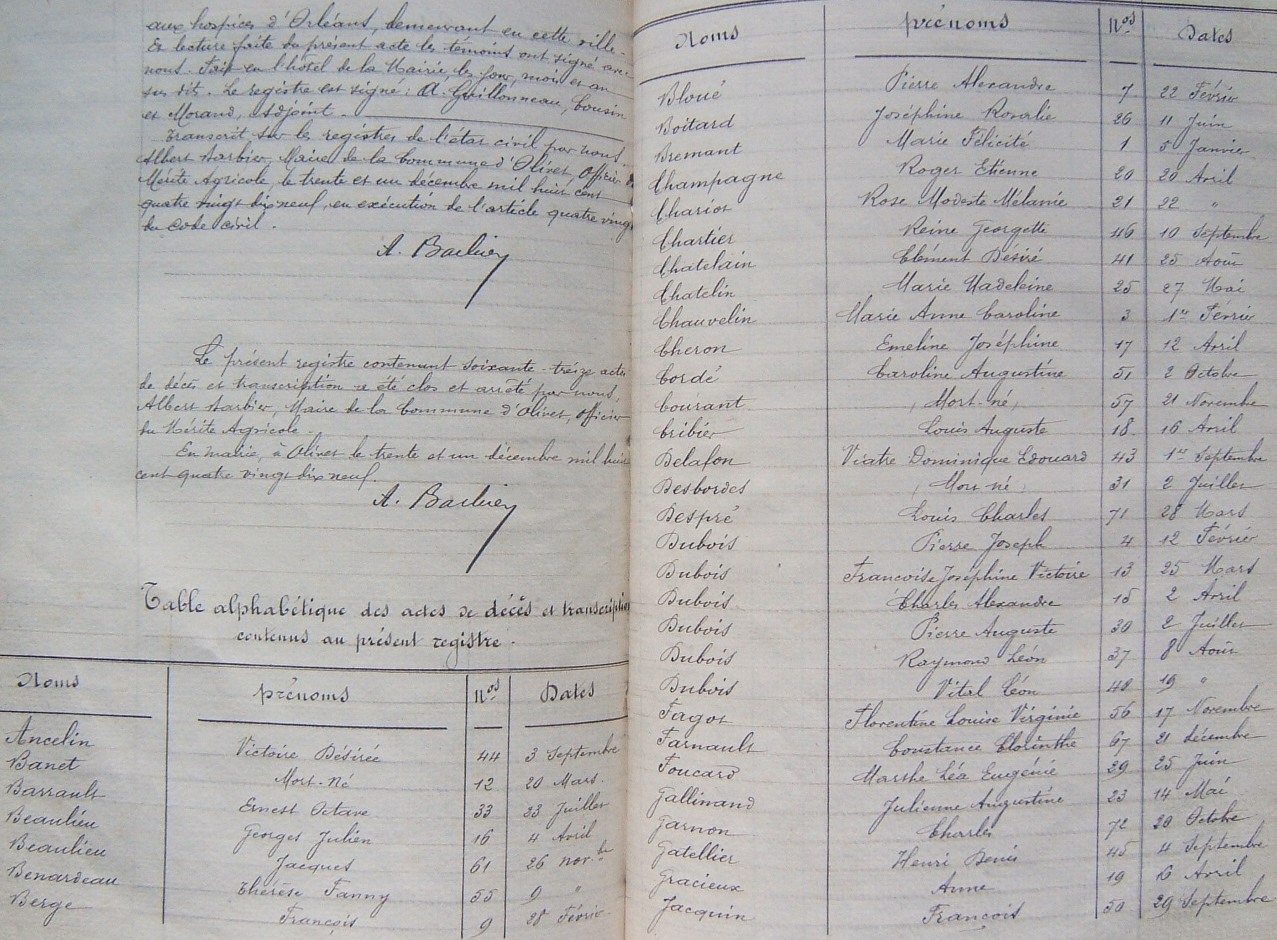 aux hospices d'Orléans, demeurant en cette ville.
Et lecture faite du présent acte les témoins ont signé avec
nous. Fait en l'hôtel de la Mairie, les jour, mois et an
sus dit. Le registre est signé : A. Guillonneau, Cousin
et Morand, Adjoint.
Transcrit sur les registres de l'état civil par nous
Albert Barbier, Maire de la Commune d'Olivet, Officier du
Mérite Agricole, le trente et un décembre mil huit cent
quatre vingt dix neuf, en exécution de l'article quatre vingt
du code civil.
A. Barbier
Le présent registre contenant soixante-treize actes
de décès et transcription a été clos et arrêté par nous,
Albert Barbier, Maire de la Commune d'Olivet, Officier
du Mérite Agricole.
En mairie, à Olivet le trente et un décembre mil huit
cent quatre vingt dix neuf.
A. Barbier
Table alphabétique des actes de décès et transcription
contenus au présent registre.
Noms prénoms Nos Dates
Ancelin Victoire Désirée 44 3 Septembre
Banet Mort-Né 12 20 Mars
Barrault Ernest Octave 33 23 Juillet
Beaulieu Georges Julien 16 4 Avril
Beaulieu Jacques 61 26 novbre
Benardeau Thérèse Fanny 55 9 "
Berge François 9 28 Février
Noms prénoms Nos Dates
Bloué Pierre Alexandre 7 22 Février
Boitard Joséphine Rosalie 26 11 Juin
Bremant Marie Félicité 1 5 Janvier
Champagne Roger Etienne 20 20 Avril
Chariot Rose Modeste Mélanie 21 22 "
Chartier Reine Georgette 46 10 Septembre
Chatelain Clément Désiré 41 25 Août
Chatelin Marie Madeleine 25 27 Mai
Chauvelin Marie Anne Caroline 3 1er Février
Cheron Emeline Joséphine 17 12 Avril
Cordé Caroline Augustine 51 2 Octobre
Courant (Mort-né) 57 21 Novembre
Cribier Louis Auguste 18 16 Avril
Delafon Viatre Dominique Edouard 43 1er Septembre
Desbordes (Mort né) 31 2 Juillet
Despré Louis Charles 71 28 Mars
Dubois Pierre Joseph 4 12 Février
Dubois Francoise Joséphine Victoire 13 25 Mars
Dubois Charles Alexandre 15 2 Avril
Dubois Pierre Auguste 30 2 Juillet
Dubois Raymond Léon 37 8 Août
Dubois Vital Léon 40 19 "
Fagot Florentine Louise Virginie 56 17 Novembre
Farnault Constance Clorinthe 67 21 décembre
Foucard Marthe Léa Eugénie 29 25 Juin
Gallinand Julienne Augustine 23 14 Mai
Garnon Charles 72 20 Octobre
Gatellier Henri Denis 45 4 Septembre
Gracieux Anne 19 16 Avril
Jacquin François 50 29 Septembre